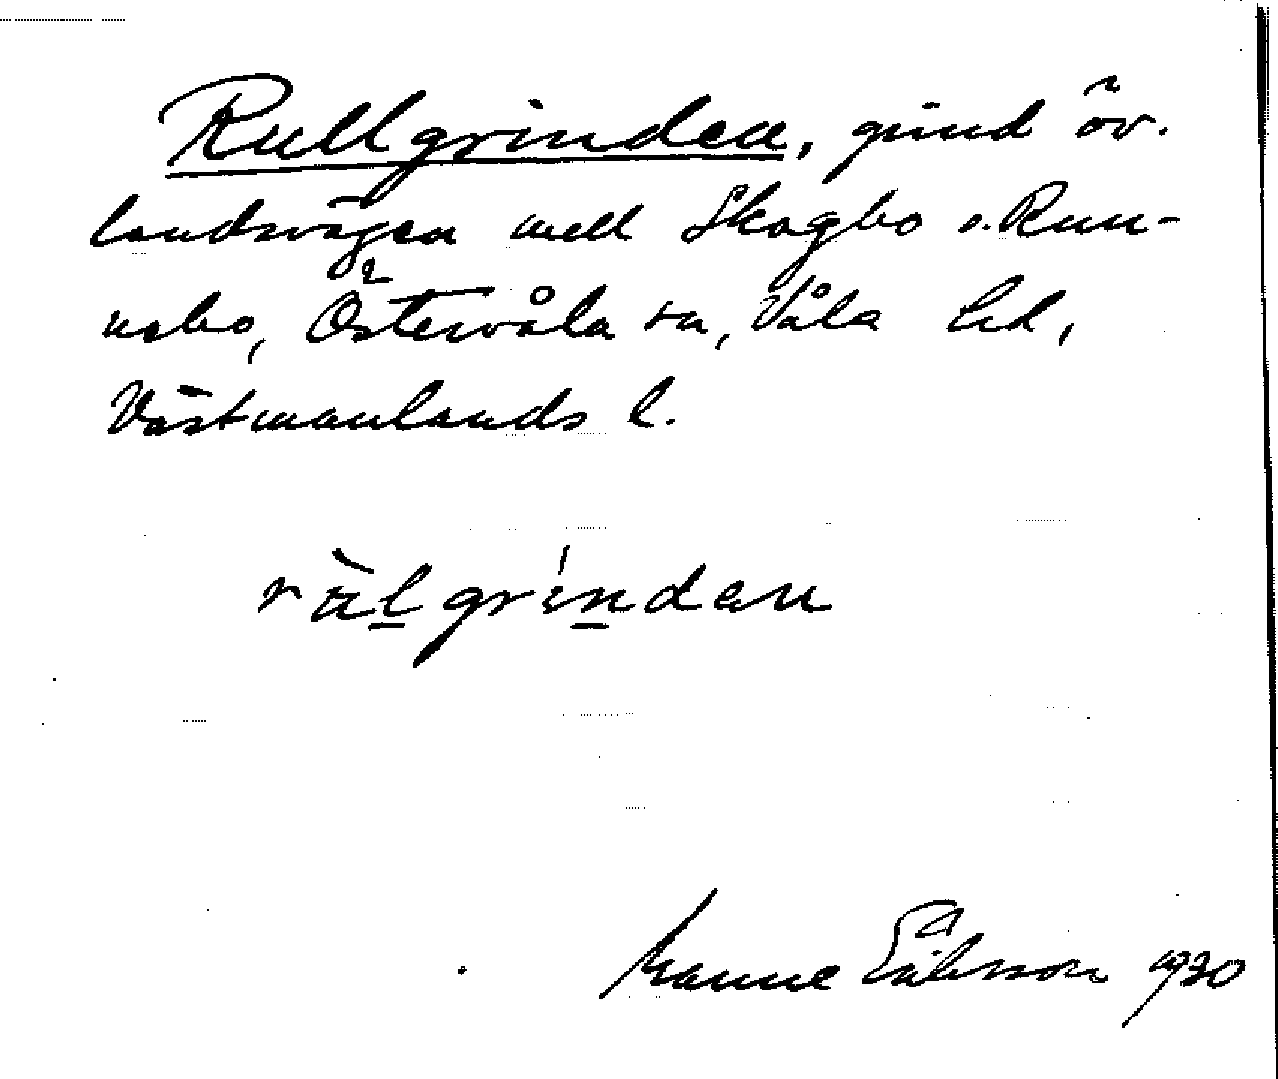 Rullgrinden, grind öv.
landsvägen mell Skogbo o. Run-
nebo, Östervåla sn, Våla hd,
Västmanlands l.
rülgrindan
Manne Eriksson 1930